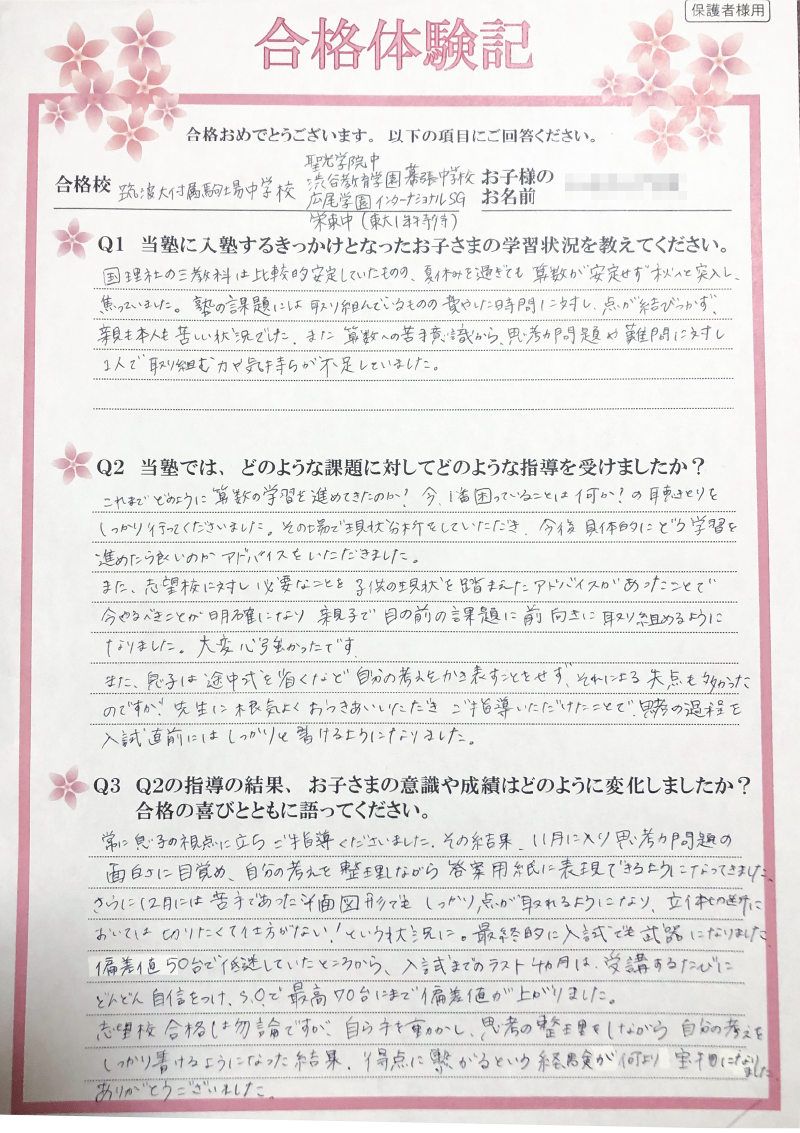 保護者様用
合格体験記
合格おめでとうございます。以下の項目にご回答ください。
合格校 筑波大付属駒場中学校
聖光学院中
渋谷教育学園幕張中学校
広尾学園インターナショナルSG
栄東中(東大1年特待)
お子様の
お名前
Q1 当塾に入塾するきっかけとなったお子さまの学習状況を教えてください。
国理社の三教科は比較的安定していたものの、夏休みを過ぎても算数が安定せず秋へと突入し、
焦っていました。塾の課題には取り組んでいるものの費やした時間に対し、点が結びつかず、
親も本人も苦しい状況でした。また算数への苦手意識から、思考力問題や難問に対し
1人で取り組む力や気持ちが不足していました。
Q2 当塾では、どのような課題に対してどのような指導を受けましたか?
これまでどのように算数の学習を進めてきたのか?今、1番困っていることは何か?の聴きとりを
しっかり行ってくださいました。その場で現状分析をしていただき、今後具体的にどう学習を
進めたら良いのかアドバイスをいただきました。
また、志望校に対し必要なことを子供の現状を踏まえたアドバイスがあったことで
今やるべきことが明確になり親子で目の前の課題に前向きに取り組めるように
なりました。大変心強かったです
また、息子は途中式を省くなど自分の考えをかき表すことをせず、それによる失点も多かった
のですが、先生に根気よくおつきあいいただきご指導いただけたことで、思考の過程を
入試直前にはしっかりと書けるようになりました。
Q3 Q2の指導の結果、お子さまの意識や成績はどのように変化しましたか?
合格の喜びとともに語ってください。
常に息子の視点に立ちご指導くださいました。その結果、11月に入り思考力問題の
面白さに目覚め、自分の考えを整理しながら答案用紙に表現できるようになってきました。
さらに12月には苦手であった平面図形でもしっかり点が取れるようになり、立体切断に
おいては切りたくて仕方がない!という状況に。最終的に入試でも武器になりました
偏差値50台で低迷していたところから、入試までのラスト4カ月は、受講するたびに
どんどん自信をつけ、S.Oで最高70台にまで偏差値が上がりました。
志望校合格は勿論ですが、自ら手を動かし、思考の整理をしながら自分の考えを
しっかり書けるようになった結果、得点に繋がるという経験が何より宝物になりました
ありがとうございました。